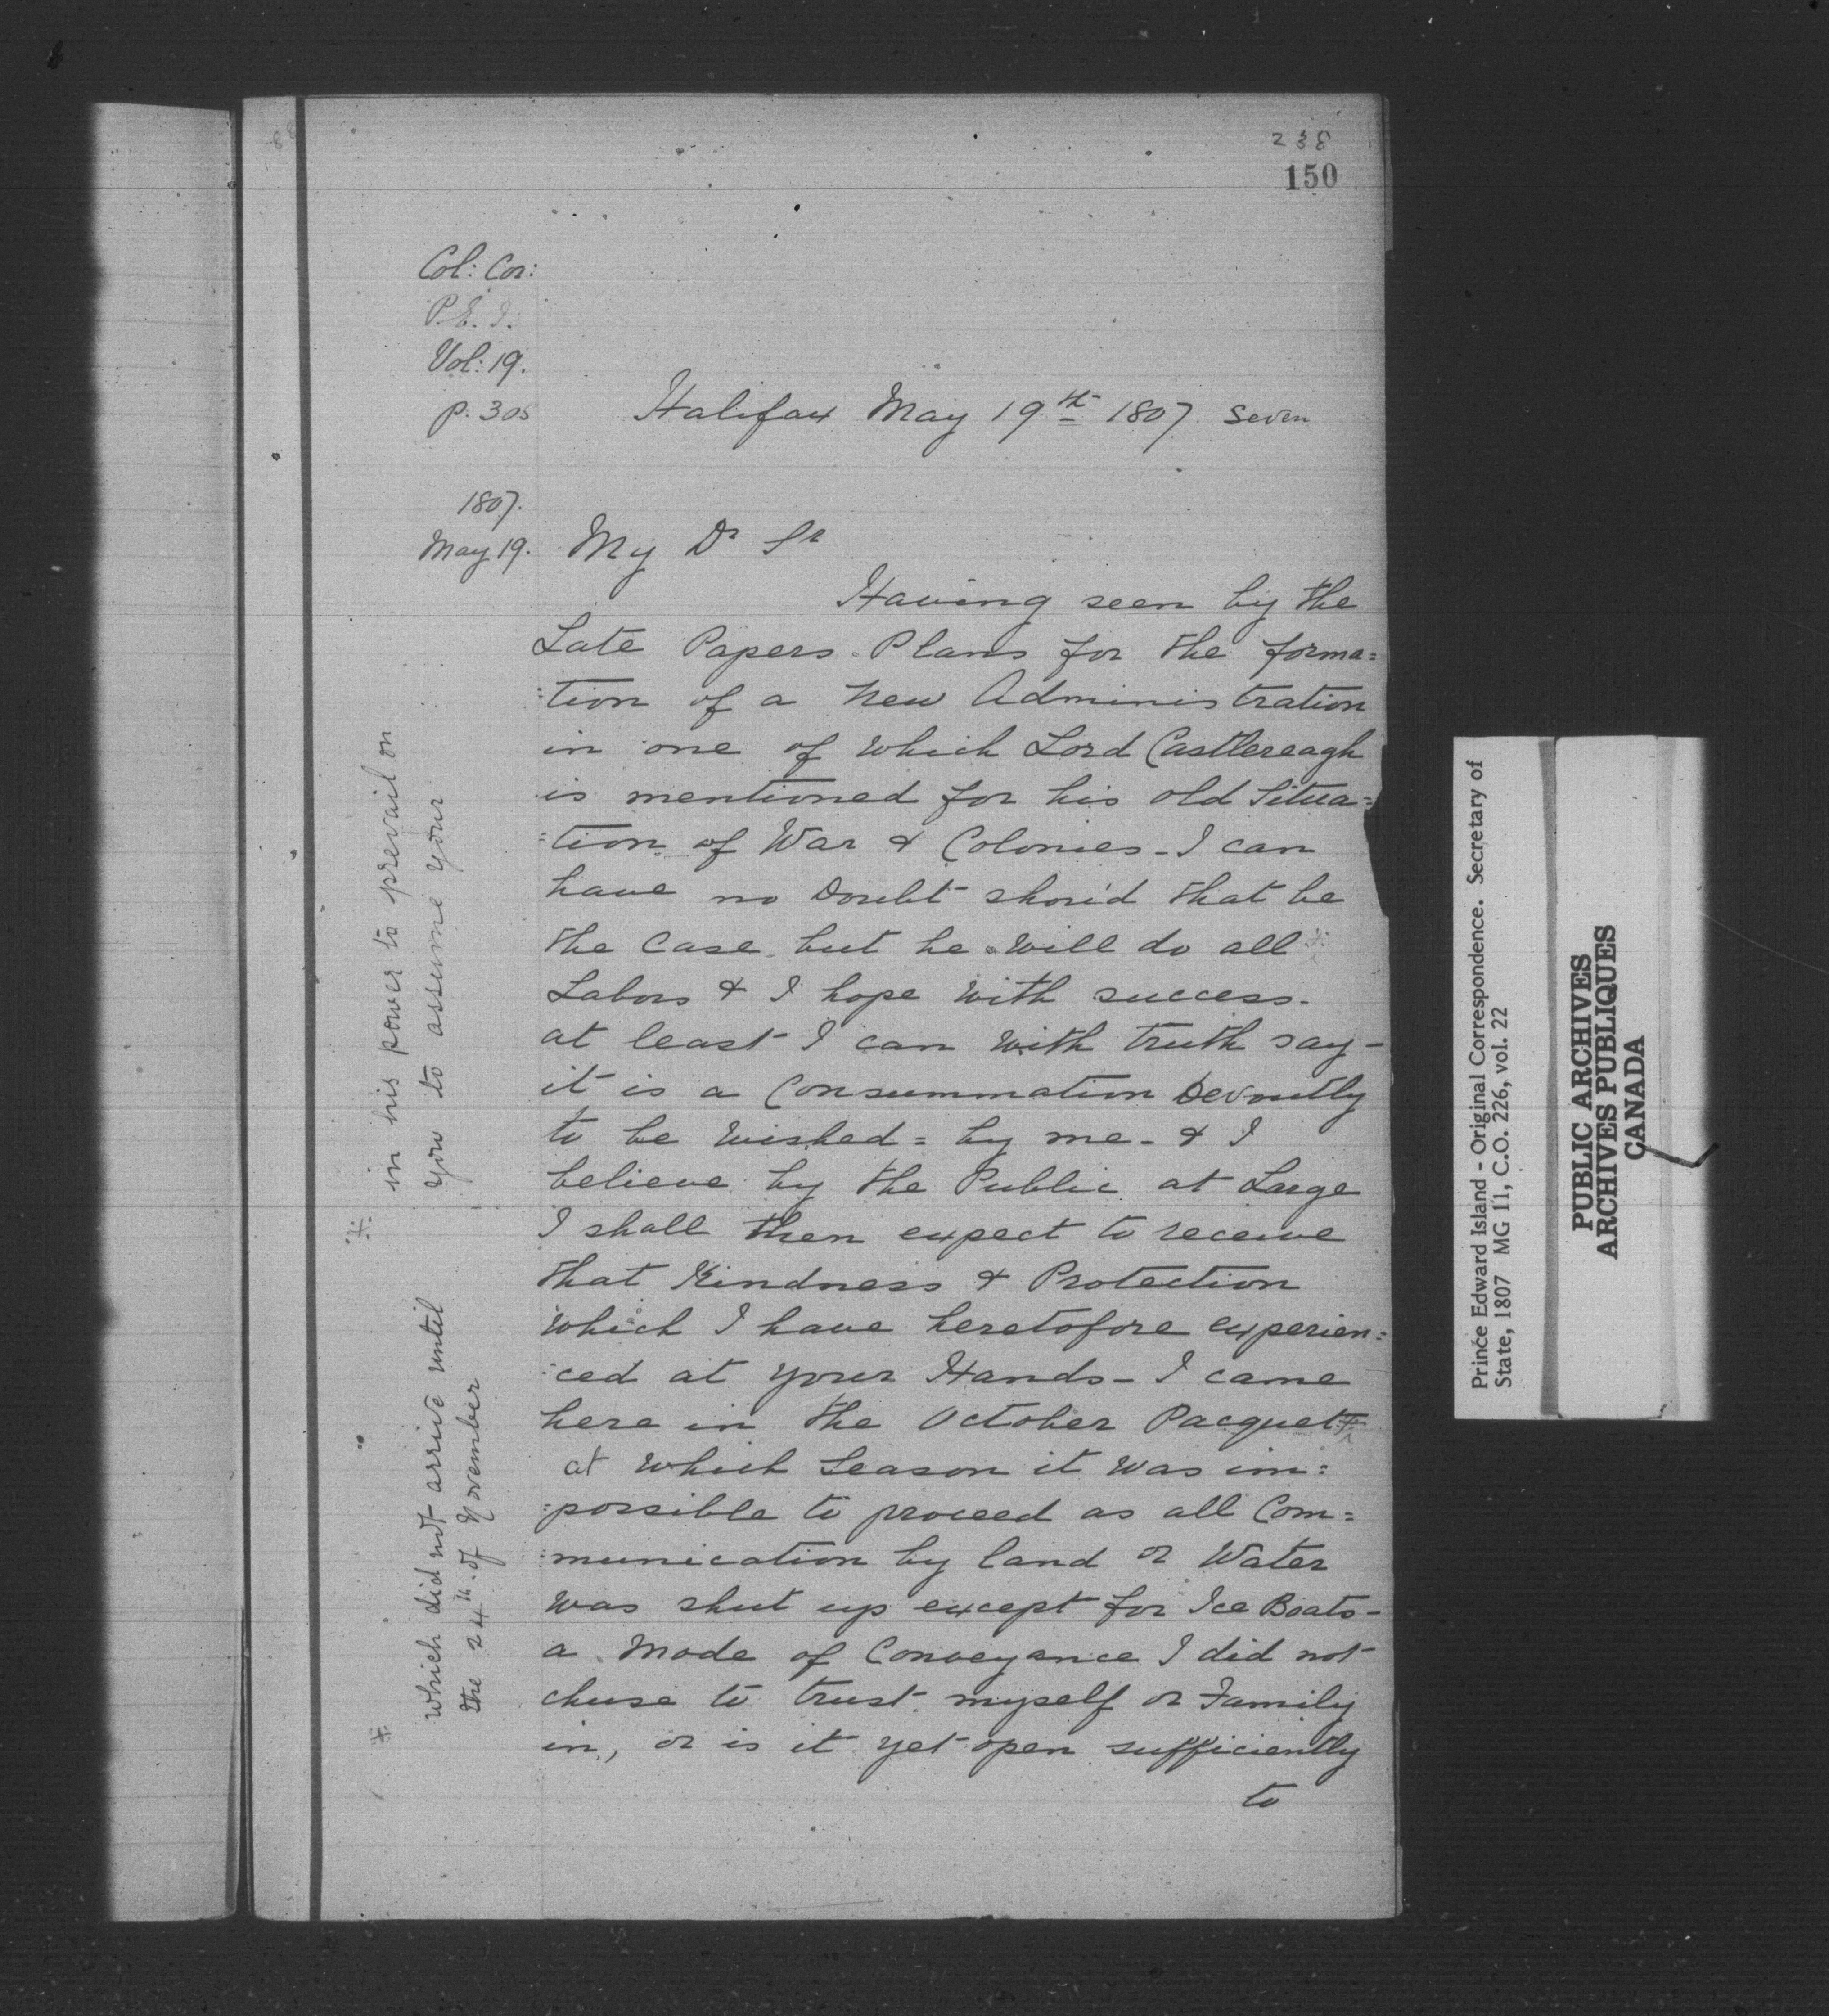 238
150
Col: Cor:
P.E.I.
Vol: 19.
p. 305
Halifax May 19th 1807 Seven
1807.
May 19.
My Dr Sr
Having seen by the
Late Papers Plans for the forma=
=tion of a New Administration
in one of which Lord Castlereagh
is mentioned for his old Situa=
=tion of War & Colonies - I can
have no Doubt shou'd that be
the Case but he will do all *
Labors & I hope with success -
at least I can with truth say -
it is a Consummation Devoutly
to be wished = by me - & I
believe by the Public at Large
I shall then expect to receive
that Kindness & Protection
which I have heretofore experien=
=ced at your Hands - I came
here in the October Pacquet *
at which Season it was im=
=possible to proceed as all Com=
=munication by land or Water
was shut up except for Ice Boats -
a Mode of Conveyance I did not
chuse to trust myself or Family
in, or is it yet open sufficiently
to
* in his power to prevail on
you to assume your
* which did not arrive until
the 24th of November
Prince Edward Island - Original Correspondence. Secretary of
State, 1807 MG 11, C.O. 226, vol. 22
PUBLIC ARCHIVES
ARCHIVES PUBLIQUES
CANADA